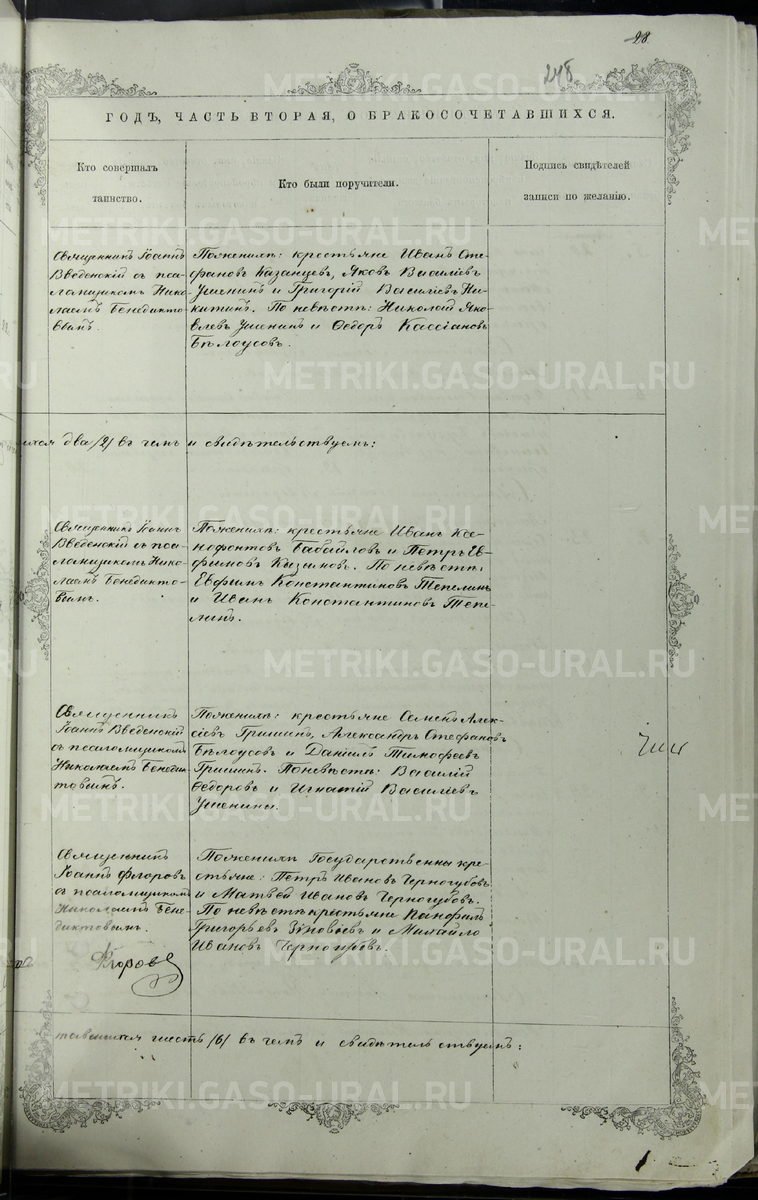 28.
248.
ГОДЪ, ЧАСТЬ ВТОРАЯ, О БРАКОСОЧЕТАВШИХСЯ.
Кто совершалъ
таинство.
Кто были поручители.
Подпись свидѣтелей
записи по желанію.
Священникъ Іоаннъ
Введенскій съ пса-
ломщикомъ Нико-
лаемъ Бенедикто-
вымъ.
По женихѣ: крестьяне Иванъ Сте-
фановъ Казанцевъ, Яковъ Василіевъ
Ушенинъ и Григорій Василіевъ Ни-
китинъ. По невѣстѣ: Николай Яко-
влевъ Ушенинъ и Ѳедоръ Кассіановъ
Бѣлоусовъ.
два /2/ въ чемъ и свидѣтельствуемъ:
Священникъ Іоаннъ
Введенскій съ пса-
ломщикомъ Нико-
лаемъ Бенедикто-
вымъ.
По женихѣ: крестьяне Иванъ Ксе-
нофонтовъ Бабайловъ и Петръ Еѵ-
фимовъ По невѣстѣ:
Евфимъ Константиновъ Тепелинъ
и Иванъ Константиновъ Тепе-
линъ.
Священникъ
Іоаннъ Введенскій
съ псаломщикомъ
Николаемъ Бенедик-
товымъ.
По женихѣ: крестьяне Семенъ Алек-
сіевъ Гришинъ, Александръ Стефановъ
Бѣлоусовъ и Даніилъ Тимофеевъ
Гришинъ. По невѣстѣ: Василій
Ѳедоровъ и Игнатій Василіевъ
Ушенины.
Священникъ
Іоаннъ Флоровъ
съ псаломщикомъ
Николаемъ Бене-
диктовымъ.
Флоровъ
По женихѣ Государственны кре-
стьяне: Петръ Ивановъ Черногубовъ
и Матвей Ивановъ Черногубовъ.
По невѣстѣ крестьяне Панфилъ
Григорьевъ Зиновьевъ и Михайло
Ивановъ Черногубовъ.
шесть /6/ въ чемъ и свидѣтельствуемъ:
METRIKI.GASO-URAL.RU
METRIKI.GASO-URAL.RU
METRIKI.GASO-URAL.RU
METRIKI.GASO-URAL.RU
METRIKI.GASO-URAL.RU
METRIKI.GASO-URAL.RU
METRIKI.GASO-URAL.RU
METRIKI.GASO-URAL.RU